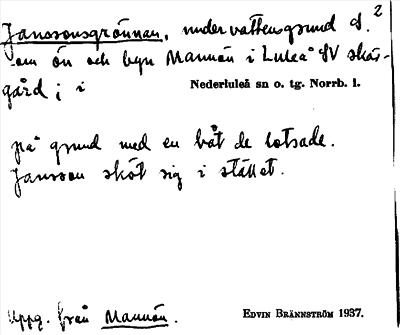 Janssonsgrönnan, undervattensgrund S. 2
om ön och byn Mannön i Luleå SV skär-
gård; i Nederluleå sn o. tg. Norrb. l.
på grund med en båt de lotsade.
Jansson sköt sig i stället.
Uppg. från Mannön.
EDVIN BRÄNNSTRÖM 1937.